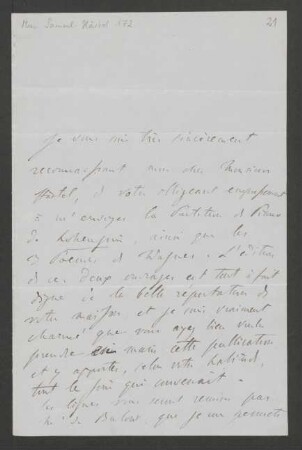 21
Je vous suis très sincèrement
reconnaissant mon cher Monsieur
Härtel, de votre obligeant empressement
à m'envoyer la Partition de Piano
de Lohengrin, ainsi que les
3 Poèmes de Wagner. L'édition
de ces deux ouvrages est tout à fait
digne de la belle réputation de
votre maison et je suis vraiment
charmé que vous ayez bien voulu
prendre en main cette publication
et y apporter, selon votre habitude,
tout le soin qui convenait.
Ces lignes vous seront remises par
Mr de Bulow, que je me permets